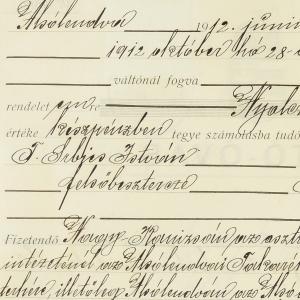 Alsólendva 1912. junius
1912 október hó 28-
váltónál fogva
rendelet em re Nyolcz
értéke készpénzben tegye számoldsba tudó
T. István
felsőbesztercze
Fizetendő Nagy-Kanizsán az oszt
intézeténél az Alsólendvai Takaré
illetőleg Alsólendván az Alsó